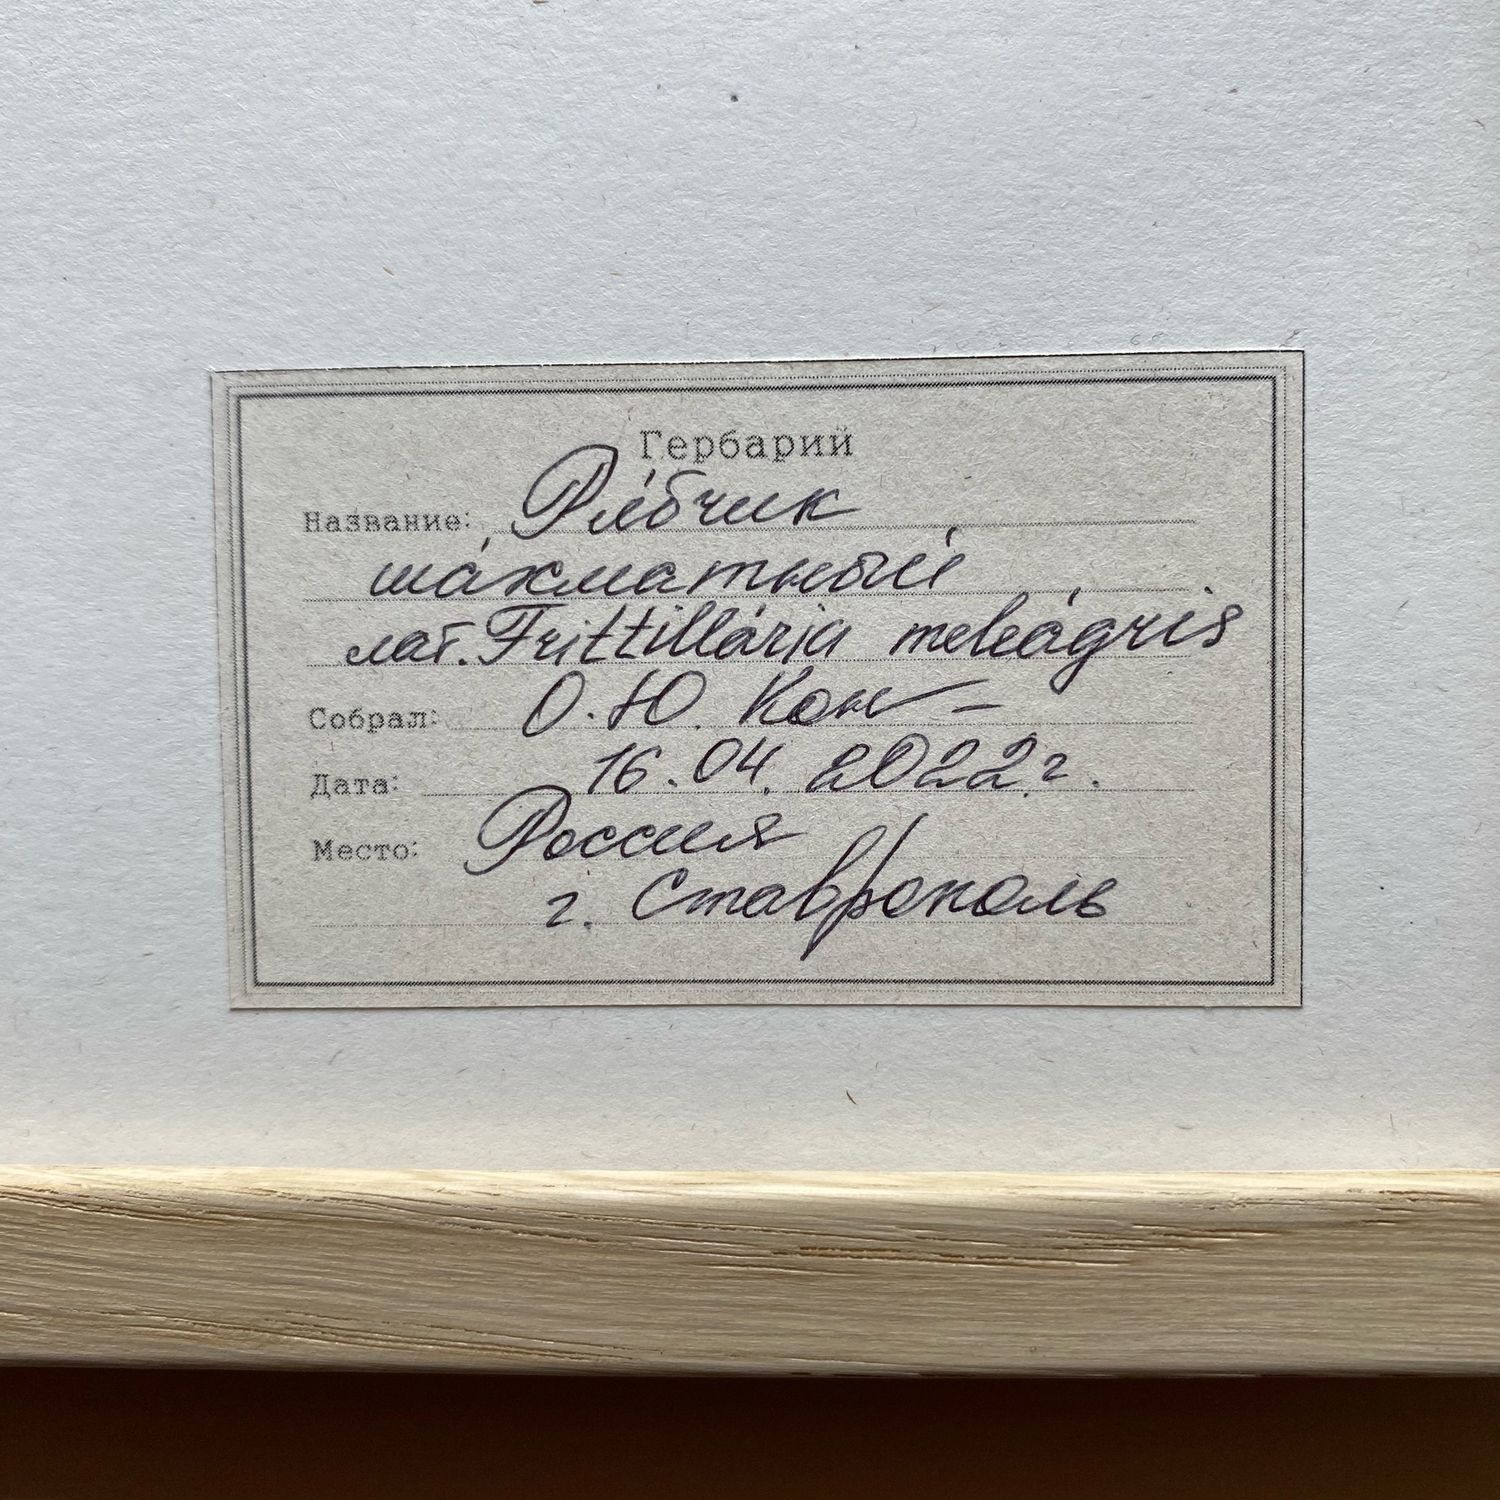 Гербарий
Название: Ря́бчик
ша́хматный
лат. Fritillária meleágris
Собрал: О.Ю. Кон
Дата: 16.04.2022 г.
Место: Россия
г. Ставрополь